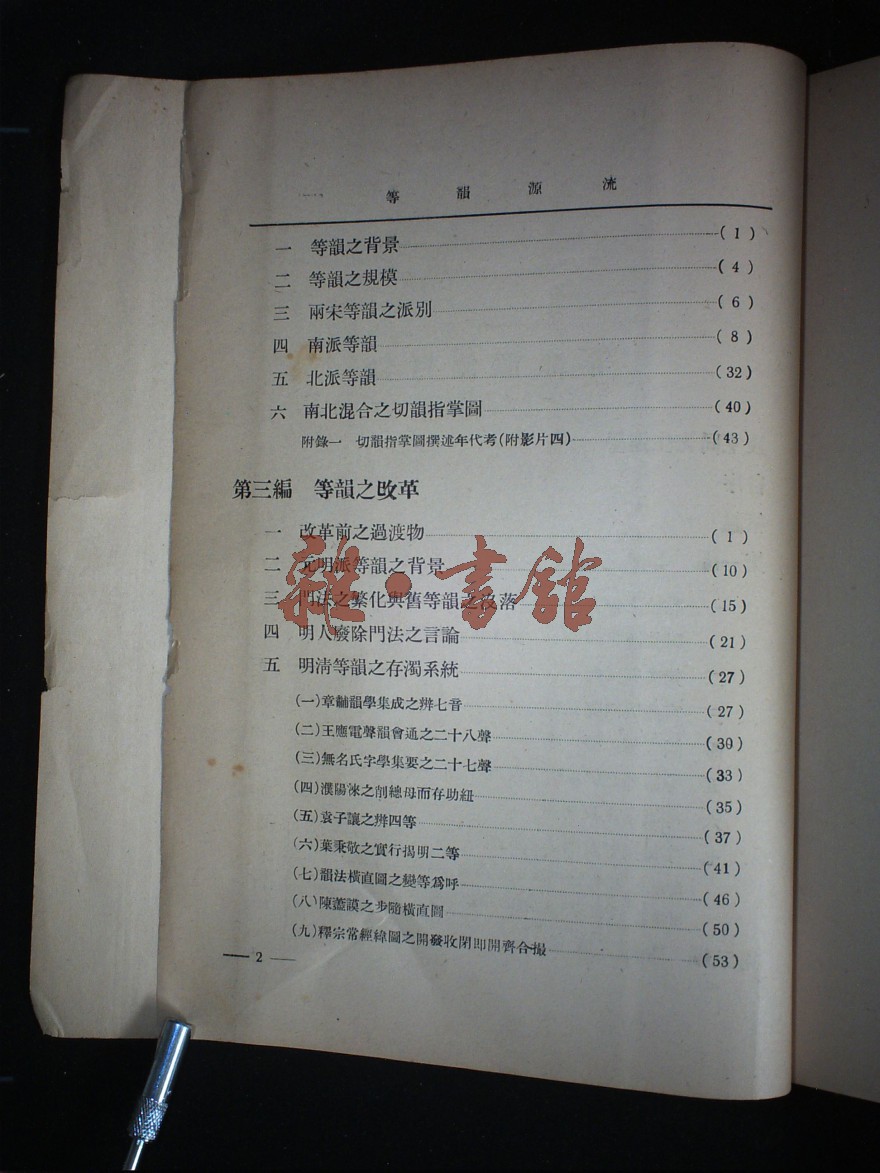 等韻源流
一 等韻之背景 (1)
二 等韻之規模 (4)
三 兩宋等韻之派別 (6)
四 南派等韻 (8)
五 北派等韻 (32)
六 南北混合之切韻指掌圖 (40)
附錄一 切韻指掌圖撰述年代考(附影片四) (43)
第三編 等韻之改革
一 改革前之過渡物 (1)
二 元明派等韻之背景 (10)
三 門法之繁化與舊等韻之沒落 (15)
四 明人廢除門法之言論 (21)
五 明清等韻之存濁系統 (27)
(一)章黼韻學集成之辨七音 (27)
(二)王應電聲韻會通之二十八聲 (30)
(三)無名氏字學集要之二十七聲 (33)
(四)濮陽淶之削總母而存助紐 (35)
(五)袁子讓之辨四等 (37)
(六)葉秉敬之實行揭明二等 (41)
(七)韻法橫直圖之變等爲呼 (46)
(八)陳藎謨之步隨橫直圖 (50)
(九)釋宗常經緯圖之開發收閉即開齊合撮 (53)
— 2 —
雜·書館